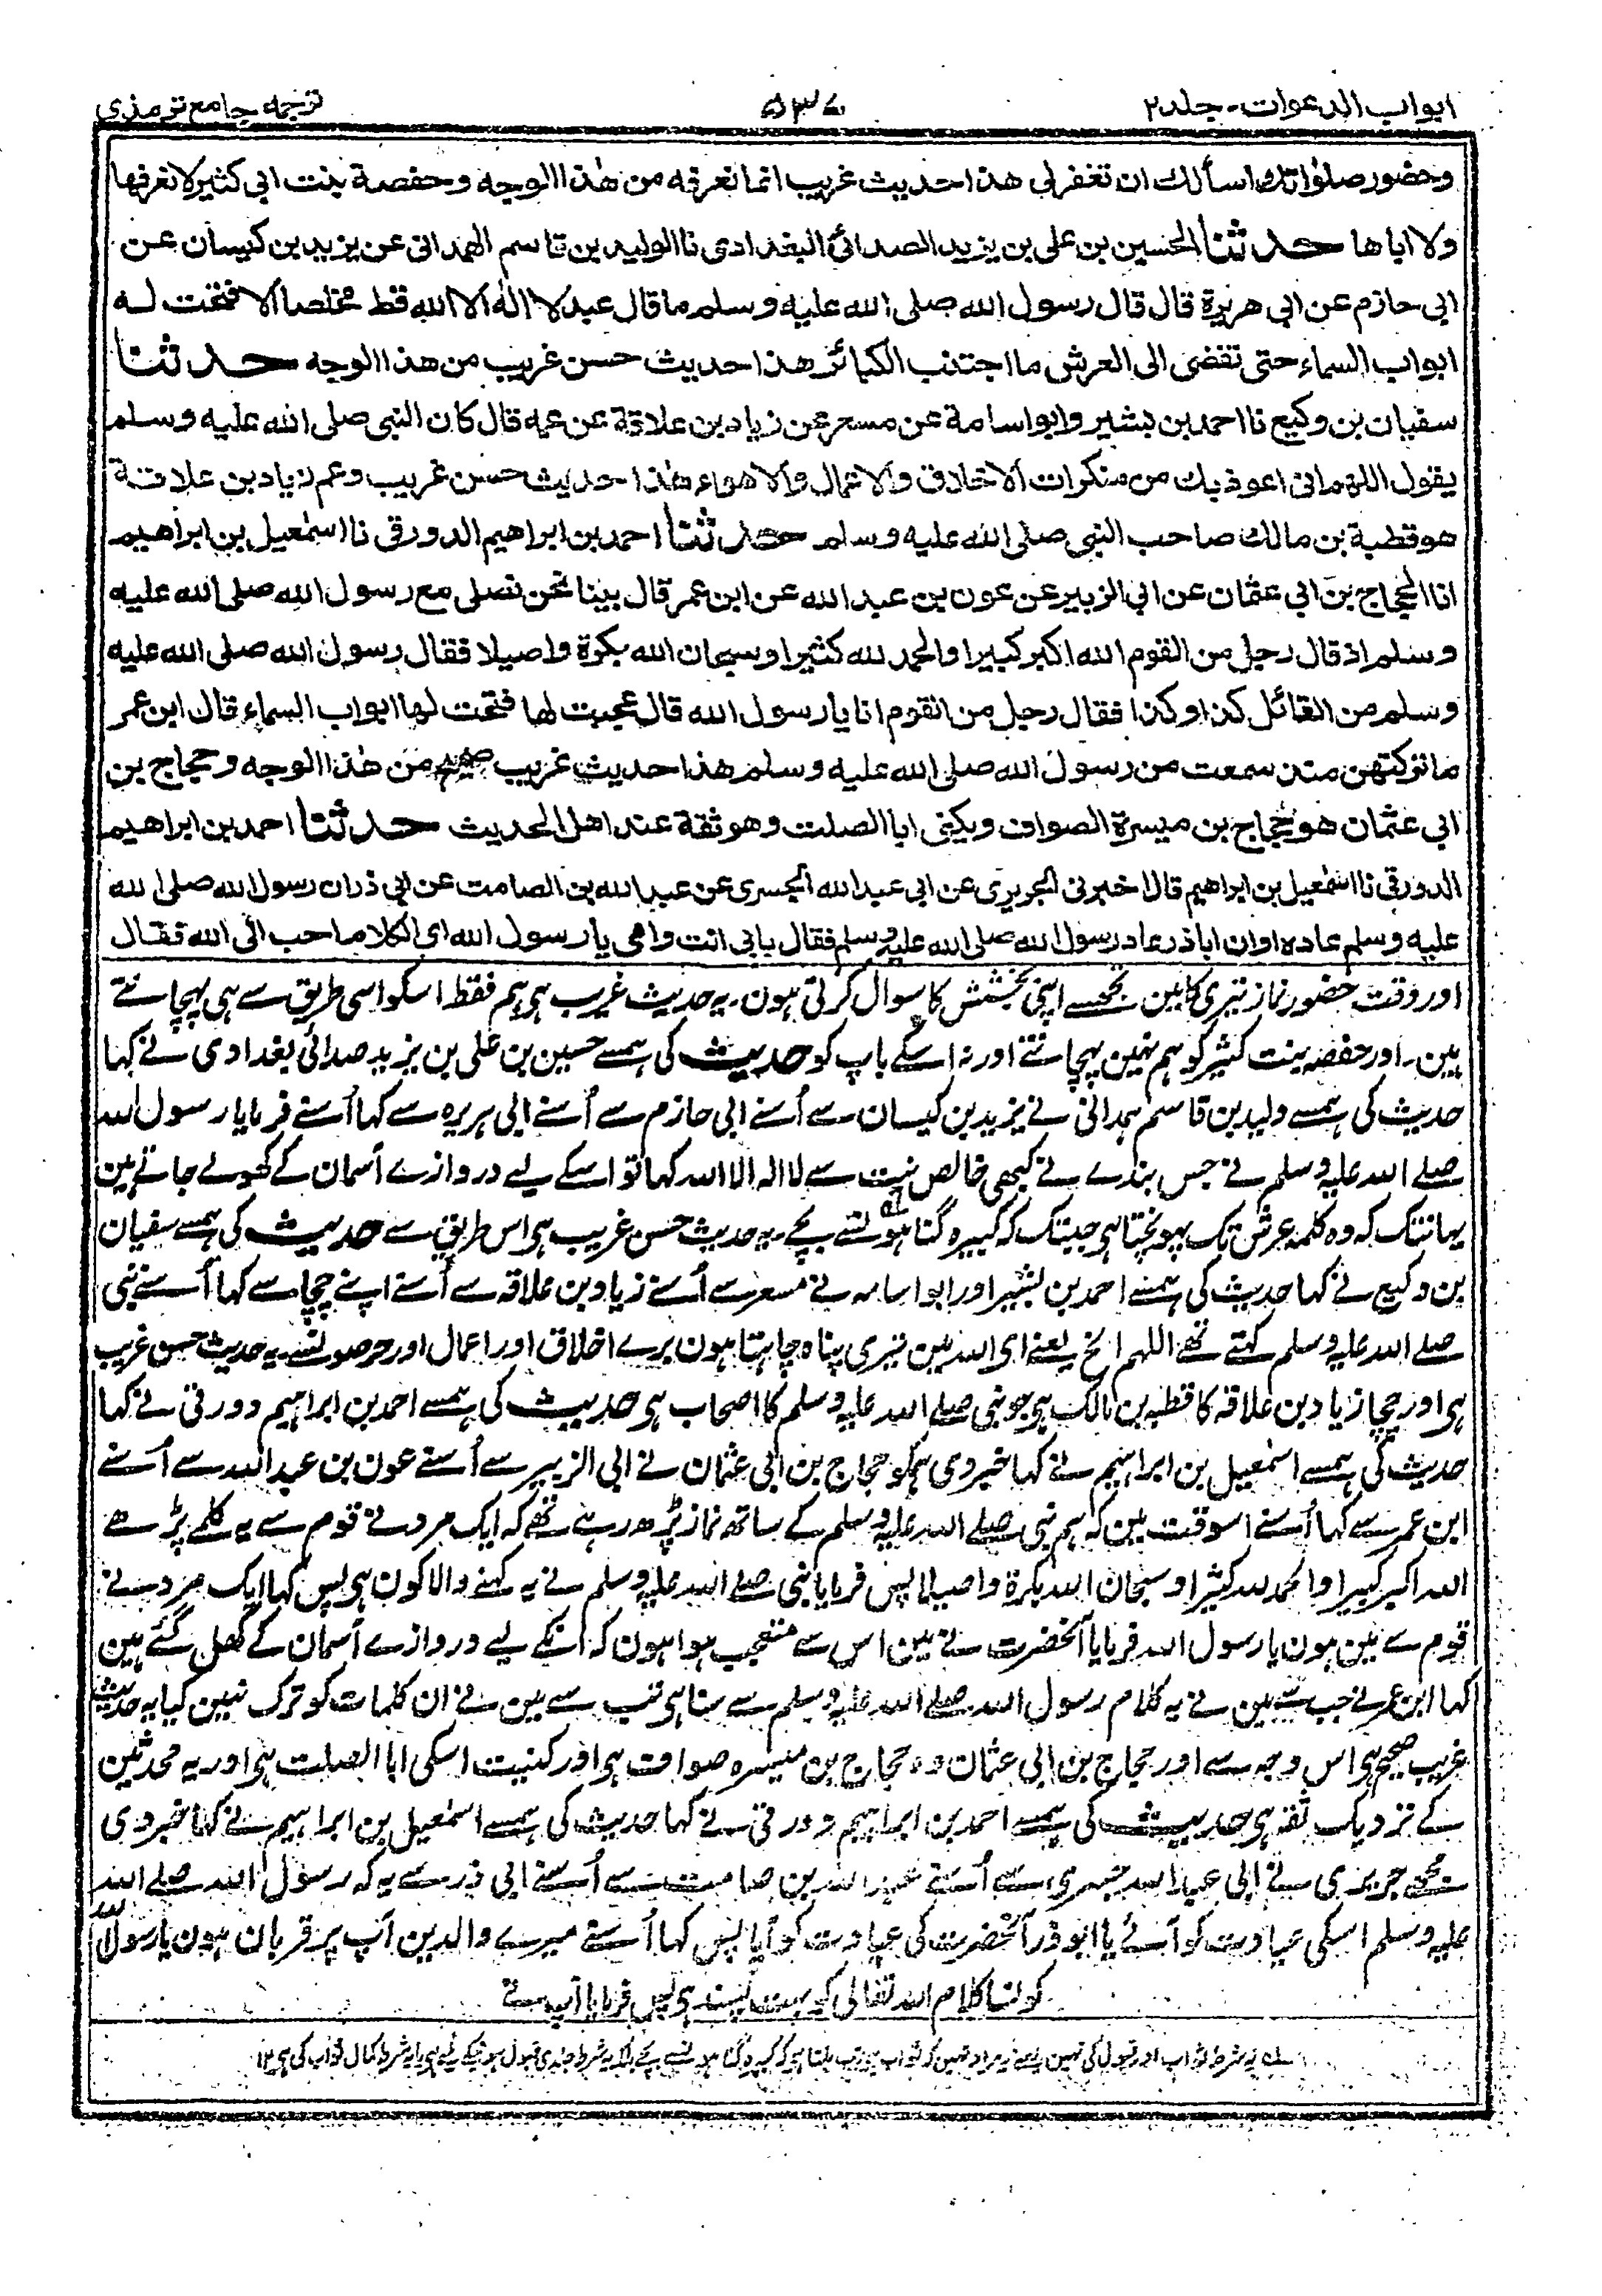 ابواب الدعوات - جلد ۲
۵۳۷
ترجمہ جامع ترمذی
وحضور صلواتك اسألك ان تغفر لی هذا حدیث غریب انما نعرفه من هذا الوجه وحفصة بنت ابی کثیر لا نعرفها
ولا اباها حدثنا الحسین بن علی بن یزید الصدائی البغدادی نا الولید بن قاسم الهمدانی عن یزید بن کیسان عن
ابی حازم عن ابی هریرة قال قال رسول الله صلی الله علیه وسلم ما قال عبد لا اله الا الله قط مخلصا الا فتحت له
ابواب السماء حتی تفضی الی العرش ما اجتنب الکبائر هذا حدیث حسن غریب من هذا الوجه حدثنا
سفیان بن وکیع نا احمد بن بشیر وابو اسامة عن مسعر عن زیاد بن علاقة عن عمه قال کان النبی صلی الله علیه وسلم
یقول اللهم انی اعوذ بك من منکرات الاخلاق والاعمال والاهواء هذا حدیث حسن غریب وعم زیاد بن علاقة
هو قطبة بن مالك صاحب النبی صلی الله علیه وسلم حدثنا احمد بن ابراهیم الدورقی نا اسمٰعیل بن ابراهیم
انا الحجاج بن ابی عثمان عن ابی الزبیر عن عون بن عبد الله عن ابن عمر قال بینا نحن نصلی مع رسول الله صلی الله علیه
وسلم اذ قال رجل من القوم الله اکبر کبیرا والحمد لله کثیرا وسبحان الله بکرة واصیلا فقال رسول الله صلی الله علیه
وسلم من القائل کذا وکذا فقال رجل من القوم انا یا رسول الله قال عجبت لها فتحت لها ابواب السماء قال ابن عمر
ما ترکتهن منذ سمعت من رسول الله صلی الله علیه وسلم هذا حدیث غریب صحیح من هذا الوجه وحجاج بن
ابی عثمان هو حجاج بن میسرة الصواف ویکنی ابا الصلت وهو ثقة عند اهل الحدیث حدثنا احمد بن ابراهیم
الدورقی نا اسمٰعیل بن ابراهیم قال اخبرنی الجریری عن ابی عبد الله الجسری عن عبد الله بن الصامت عن ابی ذر ان رسول الله صلی الله
علیه وسلم عاده او ان اباذر عاد رسول الله صلی الله علیه وسلم فقال بابی انت وامی یا رسول الله ای الکلام احب الی الله فقال
اور وقت حضور نماز تیری کا مین تجھسے اپنی بخشش کا سوال کرتی ہون۔ یہ حدیث غریب ہی ہم فقط اسکو اسی طریق سے ہی پہچانتے
ہین۔ اور حفصہ بنت کثیر کو ہم نہین پہچانتے اور نہ اسکے باپ کو حدیث کی ہمسے حسین بن علی بن یزید صدائی بغدادی نے کہا
حدیث کی ہمسے ولید بن قاسم ہمدانی نے یزید بن کیسان سے اُسنے ابی حازم سے اُسنے ابی ہریرہ سے کہا اُسنے فرمایا رسول اللہ
صلے اللہ علیہ وسلم نے جس بندے نے کبھی خالص نیت سے لا الہ الا اللہ کہا تو اسکے لیے دروازے آسمان کے کھولے جاتے ہین
یہانتک کہ وہ کلمہ عرش تک پہونچتا ہی جبتک کہ کبیرہ گناہونسے بچے۔ یہ حدیث حسن غریب ہی اس طریق سے حدیث کی ہمسے سفیان
بن وکیع نے کہا حدیث کی ہمسے احمد بن بشیر اور ابو اسامہ نے مسعر سے اُسنے زیاد بن علاقہ سے اُسنے اپنے چچا سے کہا اُسنے نبی
صلے اللہ علیہ وسلم کہتے تھے اللہم الخ یعنے ای اللہ مین تیری پناہ چاہتا ہون برے اخلاق اور اعمال اور حرصونسے۔ یہ حدیث حسن غریب
ہی اور چچا زیاد بن علاقہ کا قطبہ بن مالک ہی جو نبی صلے اللہ علیہ وسلم کا اصحاب ہی حدیث کی ہمسے احمد بن ابراہیم دورقی نے کہا
حدیث کی ہمسے اسمٰعیل بن ابراہیم نے کہا خبر دی ہمکو حجاج بن ابی عثمان نے ابی الزبیر سے اُسنے عون بن عبد اللہ سے اُسنے
ابن عمر سے کہا اُسنے اسوقت مین کہ ہم نبی صلے اللہ علیہ وسلم کے ساتھ نماز پڑھ رہے تھے کہ ایک مرد نے قوم سے یہ کلمے پڑھے
اللہ اکبر کبیرا والحمد للہ کثیرا وسبحان اللہ بکرة واصیلا پس فرمایا نبی صلے اللہ علیہ وسلم نے یہ کہنے والا کون ہی پس کہا ایک مرد نے
قوم سے مین ہون یا رسول اللہ فرمایا آنحضرت نے مین اس سے متعجب ہوا ہون کہ اُنکے لیے دروازے آسمان کے کھل گئے ہین
کہا ابن عمر نے جب سے مین نے یہ کلام رسول اللہ صلے اللہ علیہ وسلم سے سنا ہی تب سے مین نے ان کلمات کو ترک نہین کیا یہ حدیث
غریب صحیح ہی اس وجہ سے اور حجاج بن ابی عثمان وہ حجاج بن میسرہ صواف ہی اور کنیت اسکی ابا الصلت ہی اور یہ محدثین
کے نزدیک ثقہ ہی حدیث کی ہمسے احمد بن ابراہیم دورقی نے کہا حدیث کی ہمسے اسمٰعیل بن ابراہیم نے کہا خبر دی
مجھے جریری نے ابی عبد اللہ جسری سے اُسنے عبد اللہ بن صامت سے اُسنے ابی ذر سے یہ کہ رسول اللہ صلے اللہ
علیہ وسلم اسکی عیادت کو آئے یا ابوذر آنحضرت کی عیادت کو آیا پس کہا اُسنے میرے والدین آپ پر قربان ہون یا رسول اللہ
کونسا کلام اللہ تعالی کو بہت پسند ہی پس فرمایا آپ نے
سلہ یہ شرط ثواب اور قبول کی نہین یعنے یہ مراد نہین کہ ثواب جب ملتا ہی کہ کبیرہ گناہونسے بچے بلکہ یہ شرط جلدی قبول ہونیکے لیے ہی یا یہ شرط کمال ثواب کی ہی ۱۲